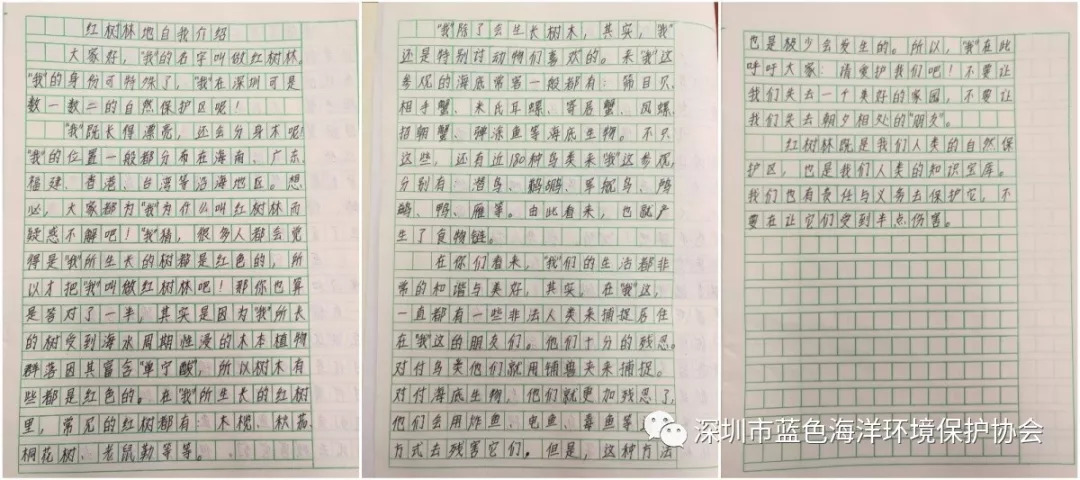 红树林地自我介绍
大家好，“我”的名字叫做红树林。
“我”的身份可特殊了，“我”在深圳可是
数一数二的自然保护区呢！
“我”既长得漂亮，还会分身术呢！
“我”的位置一般都分布在海南、广东、
福建、香港、台湾等沿海地区。想
必，大家都为“我”为什么叫红树林而
疑惑不解吧！“我”猜，很多人都会觉
得是“我”所生长的树都是红色的，所
以才把“我”叫做红树林吧！那你也算
是答对了一半，其实是因为“我”所长
的树受到海水周期性浸的木本植物
群落因其富含“单宁酸”，所以树木有
些都是红色的。在“我”所生长的红树
里，常见的红树都有：木榄、秋茄、
桐花树、老鼠勒等等。
“我”除了会生长树木，其实，“我”
还是特别讨动物们喜欢的。来“我”这
参观的海底常客一般都有：筛目贝、
相手蟹、米氏耳螺、寄居蟹、凤螺、
招朝蟹、弹涂鱼等海底生物。不只
这些，还有近180种鸟类来“我”这参观，
分别有：潜鸟、鹈鹕、军舰鸟、鸬
鹚、鸭、雁等。由此看来，也就产
生了食物链。
在你们看来，“我”们的生活都非
常的和谐与美好，其实。在“我”这，
一直都有一些非法人类来捕捉居住
在“我”这的朋友们。他们十分的残忍。
对付鸟类他们就用捕兽夹来捕捉。
对付海底生物，他们就更加残忍了，
他们会用炸鱼、电鱼、毒鱼等
方式去残害它们。但是，这种方法
也是极少会发生的。所以，“我”在此
呼吁大家：请爱护我们吧！不要让
我们失去一个美好的家园，不要让
我们失去朝夕相处的“朋友”。
红树林既是我们人类的自然保
护区，也是我们人类的知识宝库。
我们也有责任与义务去保护它，不
要在让它们受到半点伤害。
深圳市蓝色海洋环境保护协会